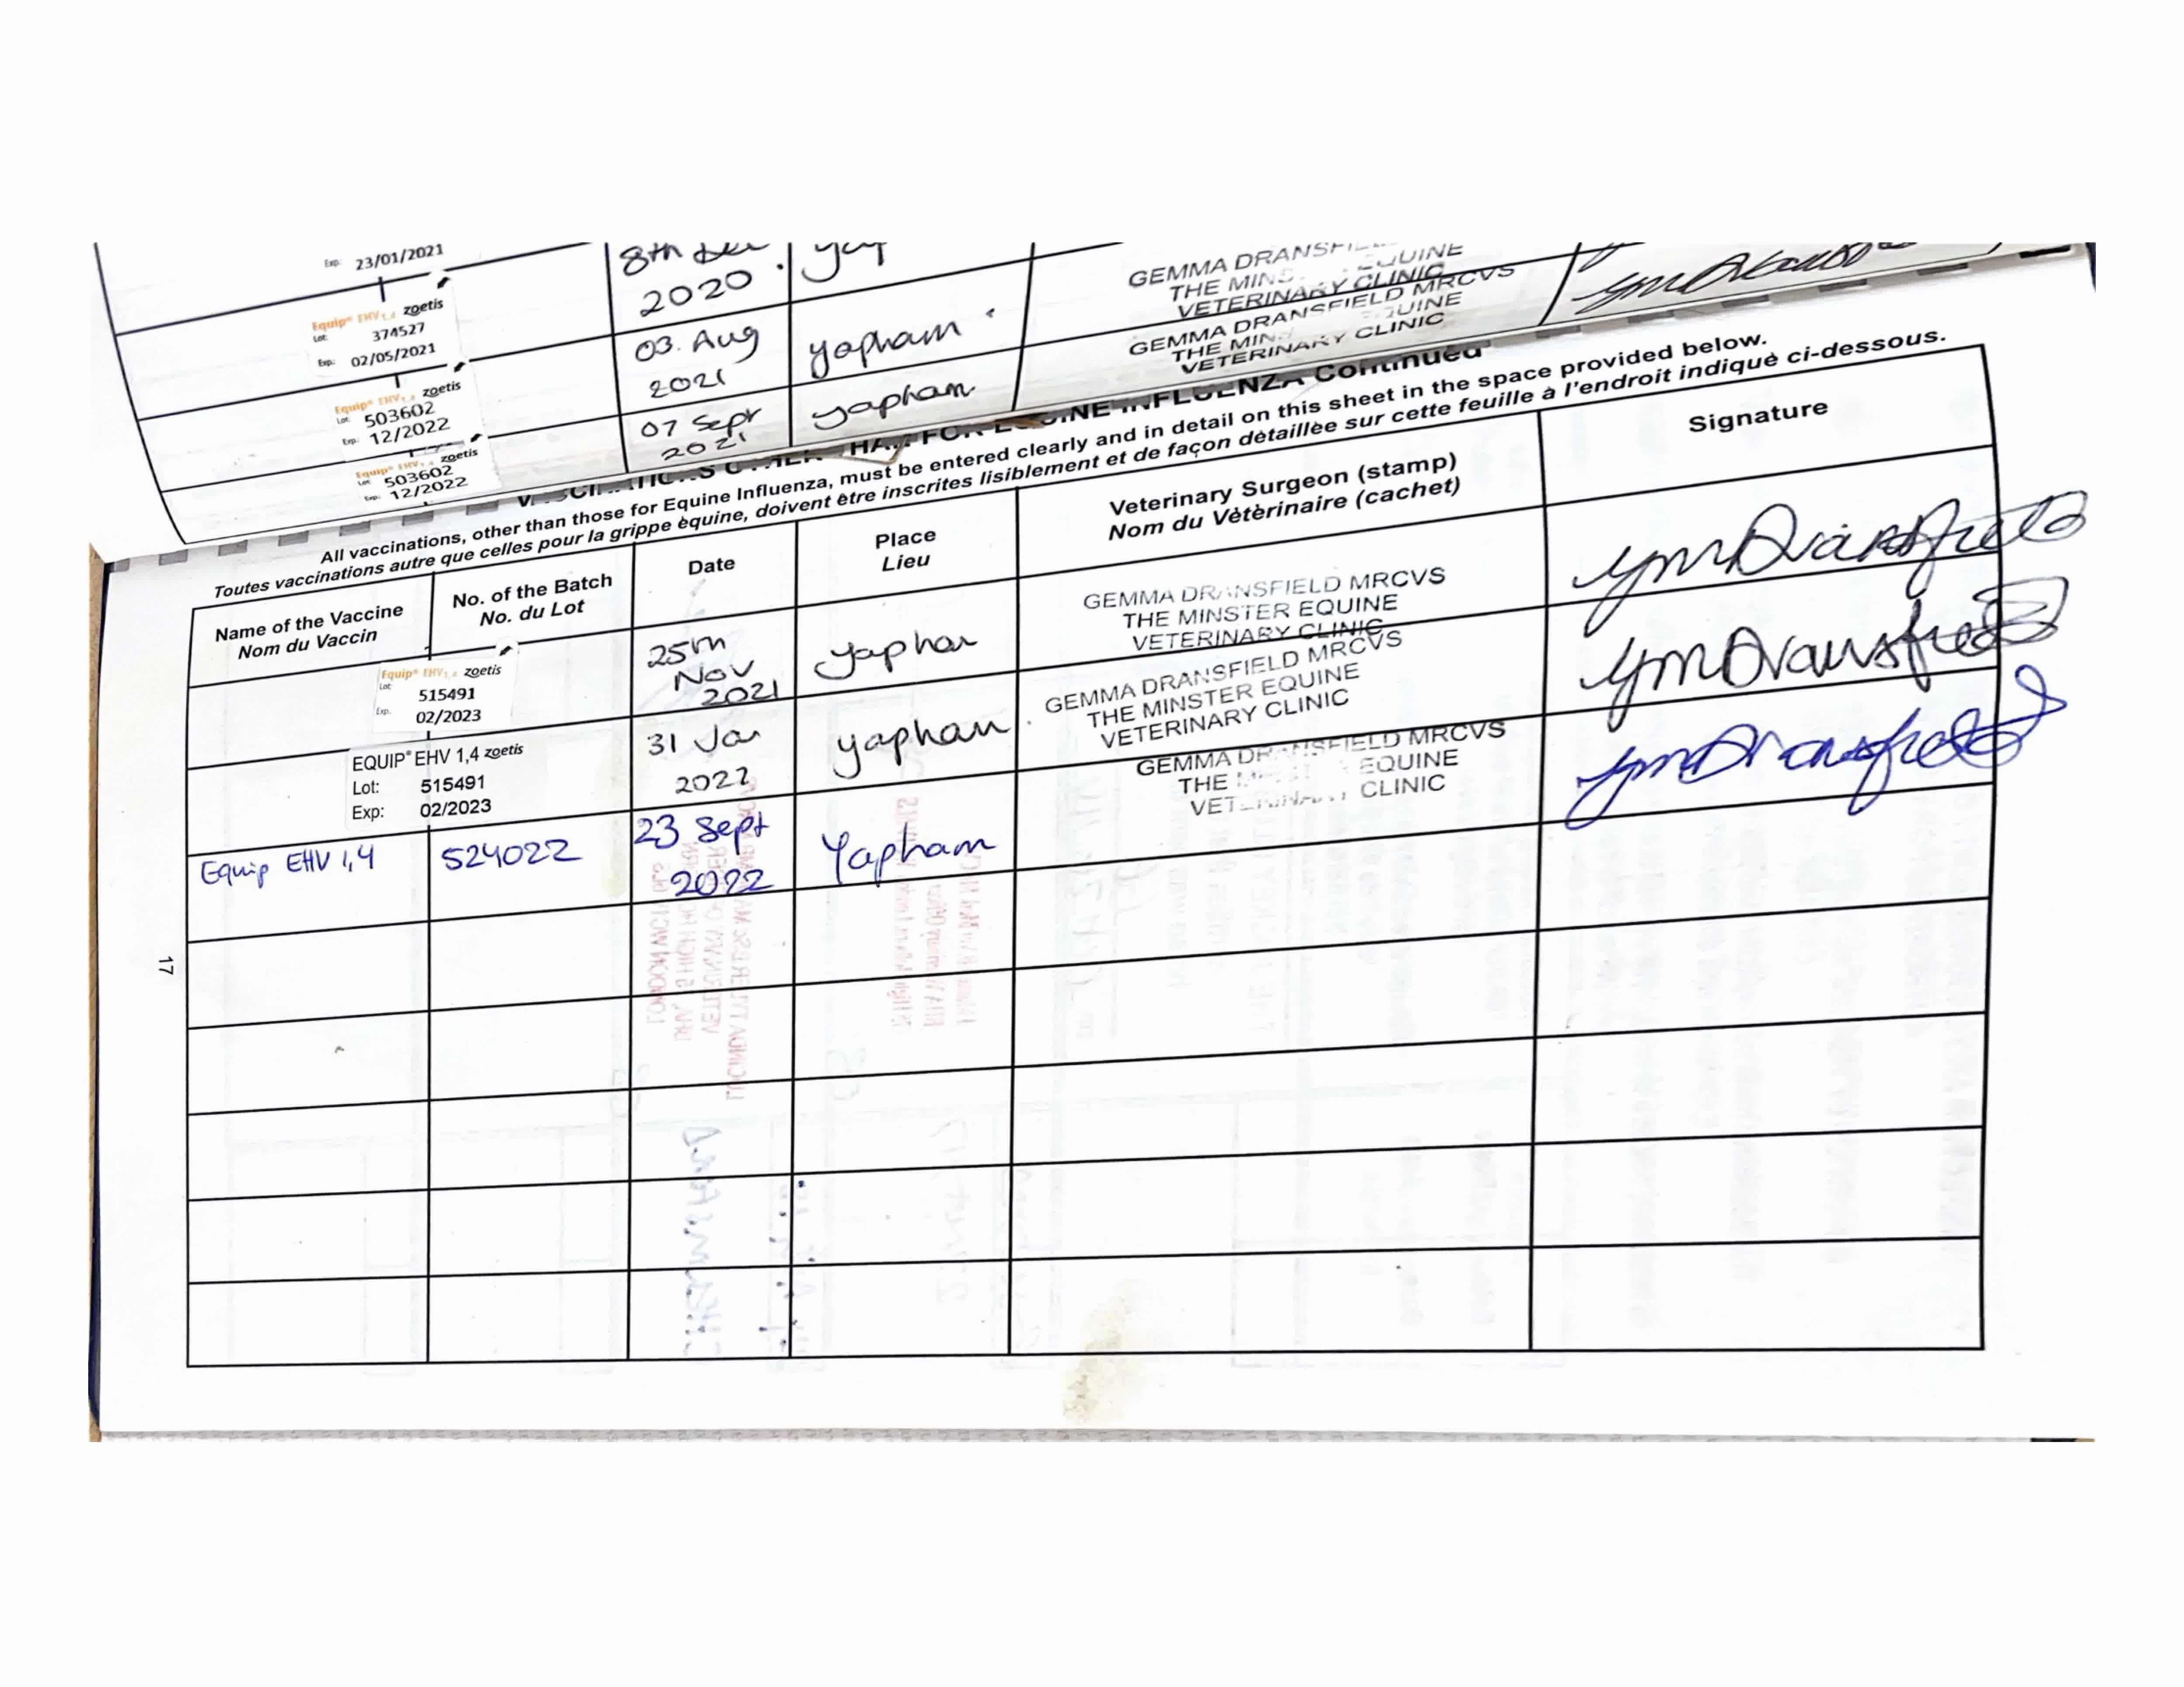 Exp: 23/01/2021
8th
2020.
GEMMA
THE
EQUINE
VETERINARY CLINIC
Equip® EHV1,4 zoetis
Lot: 374527
Exp: 02/05/2021
03. Aug
2021
yapham
GEMMA DRANSFIELD MRCVS
THE EQUINE
VETERINARY CLINIC
Equip® EHV1,4 zoetis
Lot: 503602
Exp: 12/2022
07 Sept
2021
yapham
Equip® EHV1,4 zoetis
Lot: 503602
Exp: 12/2022
FOR EQUINE INFLUENZA Continued
All vaccinations, other than those for Equine Influenza, must be entered clearly and in detail on this sheet in the space provided below.
Toutes vaccinations autre que celles pour la grippe èquine, doivent ètre inscrites lisiblement et de façon dètaillèe sur cette feuille à l'endroit indiquè ci-dessous.
Name of the Vaccine
Nom du Vaccin
No. of the Batch
No. du Lot
Date
Place
Lieu
Veterinary Surgeon (stamp)
Nom du Vètèrinaire (cachet)
Signature
Equip® EHV1,4 zoetis
Lot: 515491
Exp. 02/2023
25th
Nov
2021
yapham
GEMMA DRANSFIELD MRCVS
THE MINSTER EQUINE
VETERINARY CLINIC
GMDransfield
EQUIP® EHV 1,4 zoetis
Lot: 515491
Exp: 02/2023
31 Jan
2022
yapham
GEMMA DRANSFIELD MRCVS
THE MINSTER EQUINE
VETERINARY CLINIC
GMDransfield
Equip EHV 1,4
524022
23 Sept
2022
Yapham
GEMMA DRANSFIELD MRCVS
THE EQUINE
VETERINARY CLINIC
GMDransfield
17